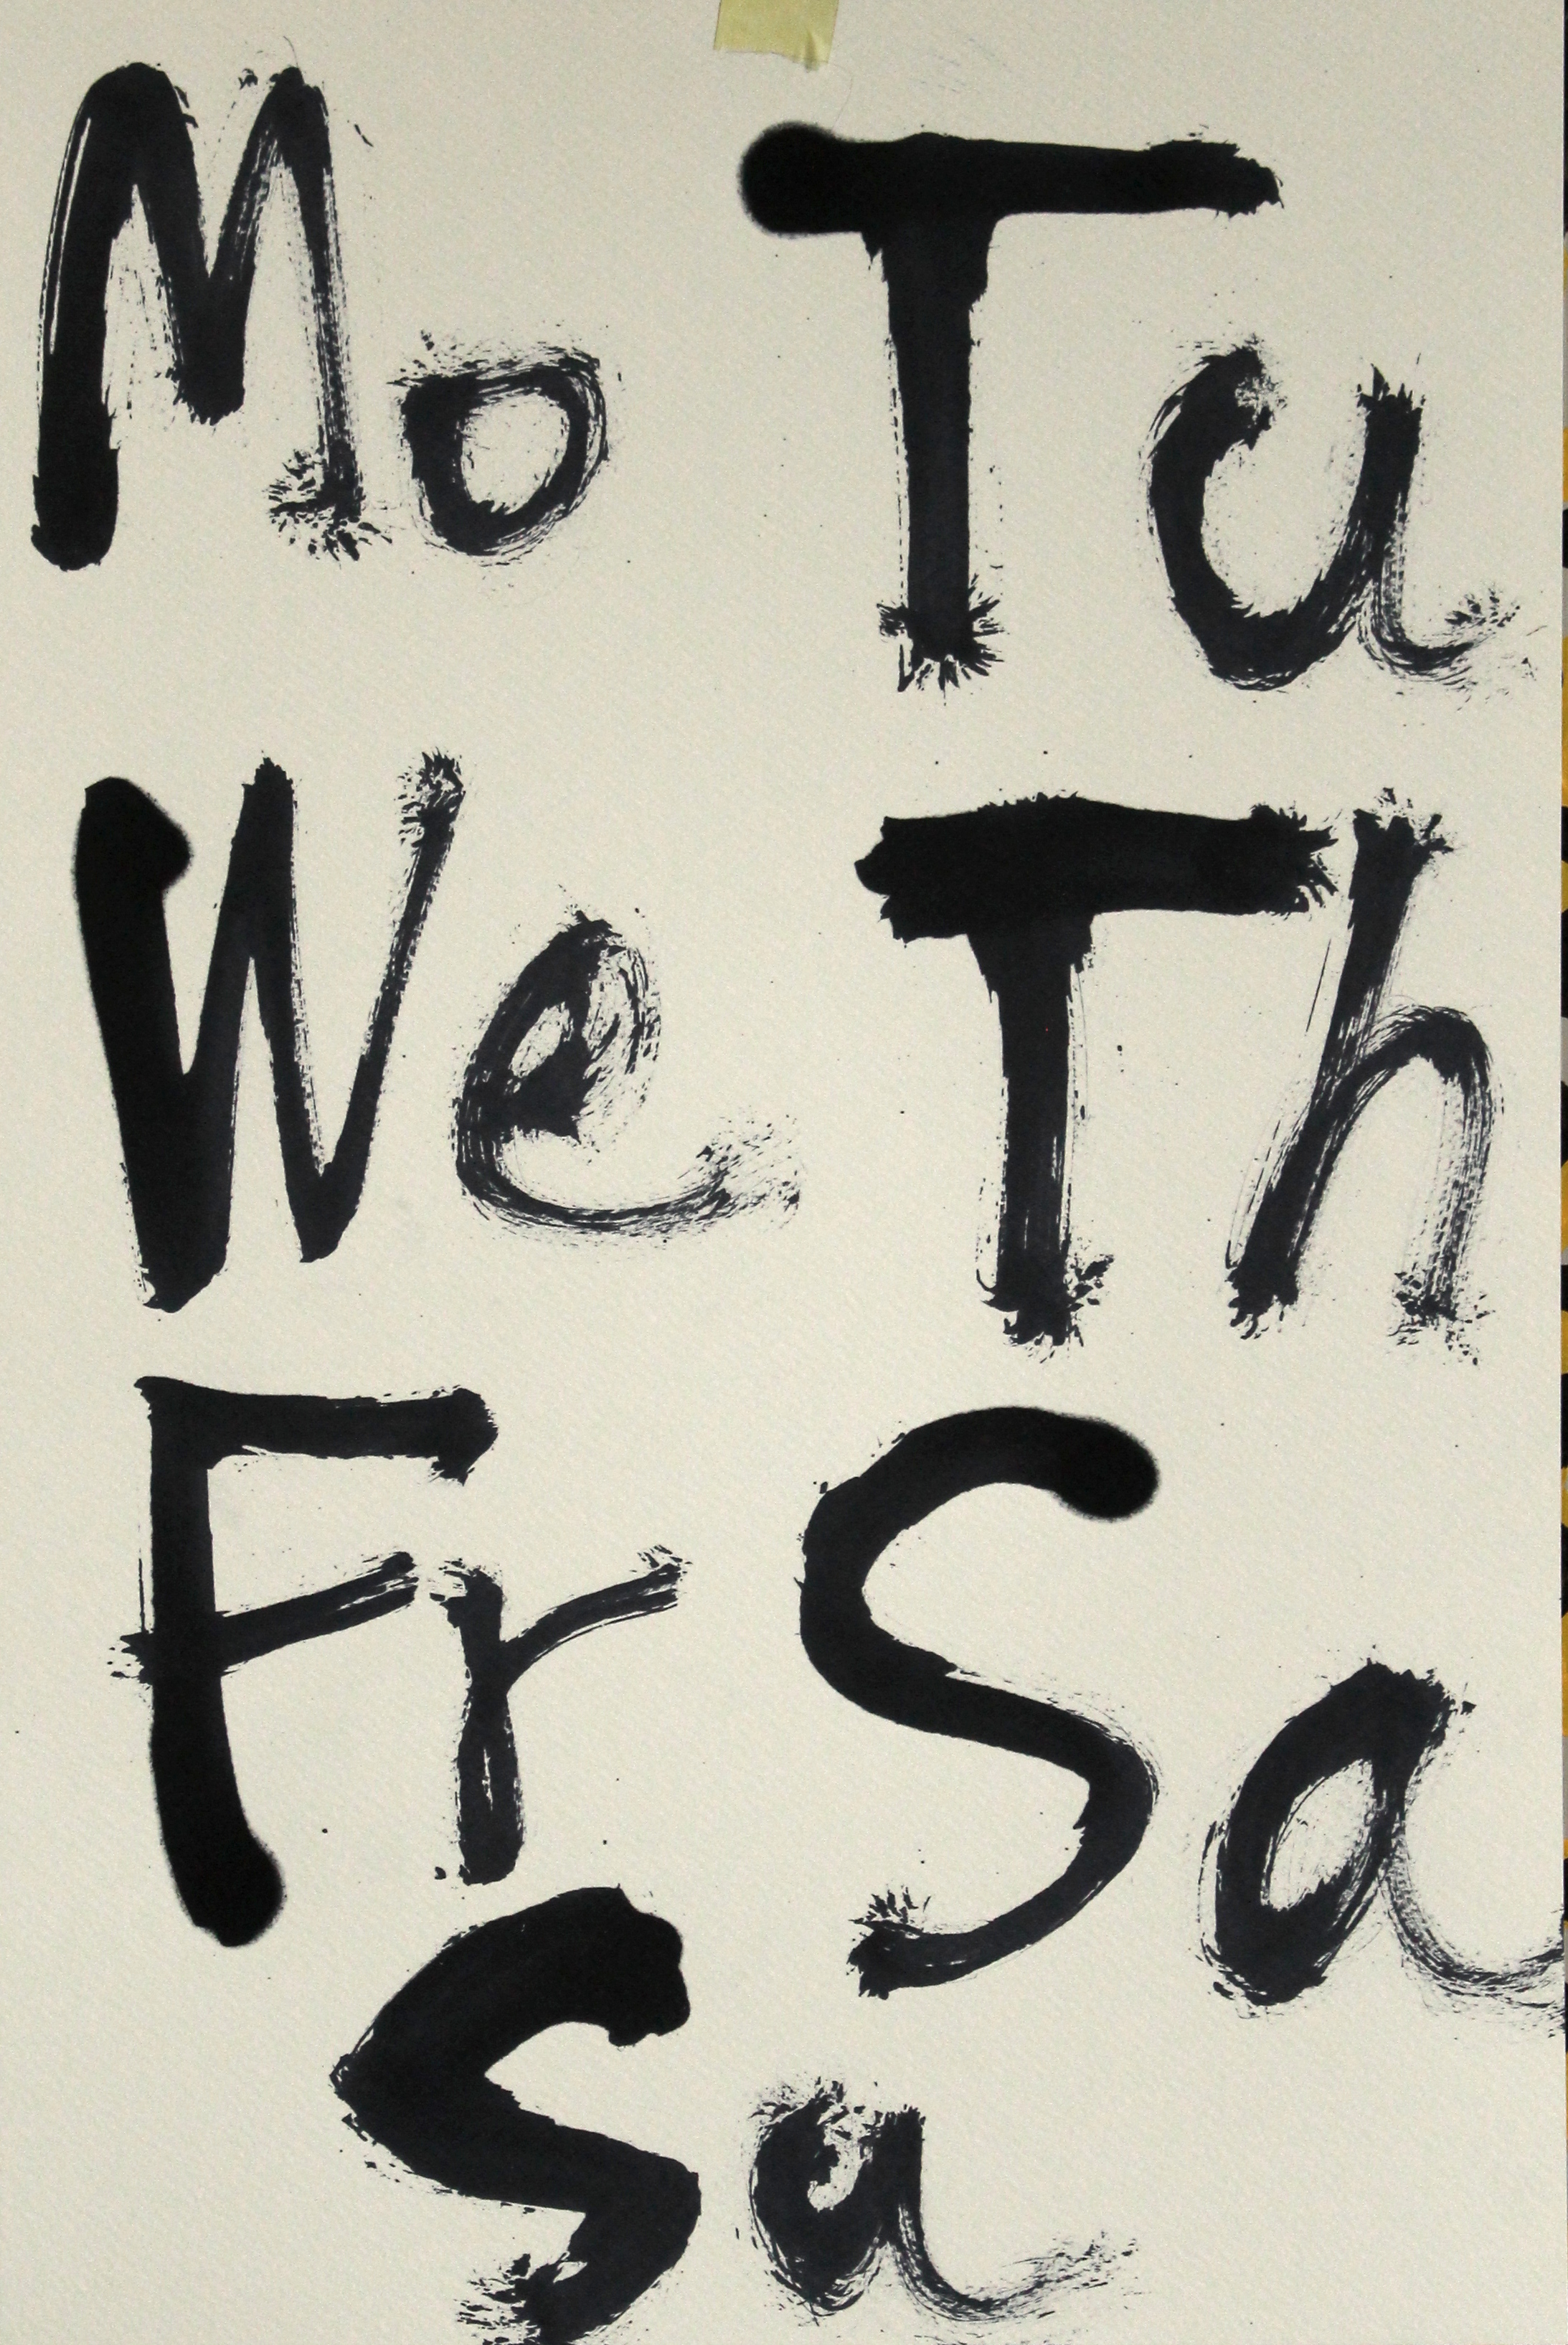 Mo Tu
We Th
Fr Sa
Su